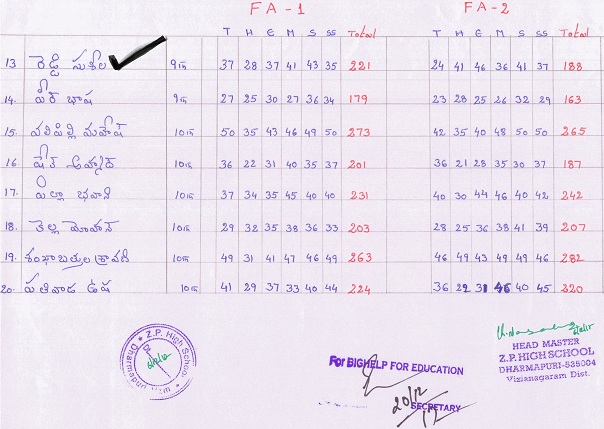 FA - 1 FA - 2
T H E M S SS Total T H E M S SS Total
13 రెడ్డి సుశీల 9th 37 28 37 41 43 35 221 24 41 46 36 41 37 188
14. పీర్ భాష 9th 27 25 30 27 36 34 179 23 28 25 26 32 29 163
15. మహేష్ 10th 50 35 43 46 49 50 273 42 35 40 48 50 50 265
16 షేక్ 10th 36 22 31 40 35 37 201 36 21 28 35 30 37 187
17. పిల్లా భవాని 10th 37 34 35 45 40 40 231 40 30 44 46 40 42 242
18. తెల్ల మోహన్ 10th 29 32 35 38 36 33 203 28 25 36 38 41 39 207
19. శంఖాబత్తుల శ్రావణి 10th 49 31 41 47 46 49 263 46 49 43 49 49 46 282
20. పతివాడ ఉష 10th 41 29 37 33 40 44 224 36 22 31 46 40 45 220
Z.P. High School
For BIGHELP FOR EDUCATION
20/12/12
SECRETARY
HEAD MASTER
Z.P. HIGH SCHOOL
DHARMAPURI-535004
Vizianagaram Dist.